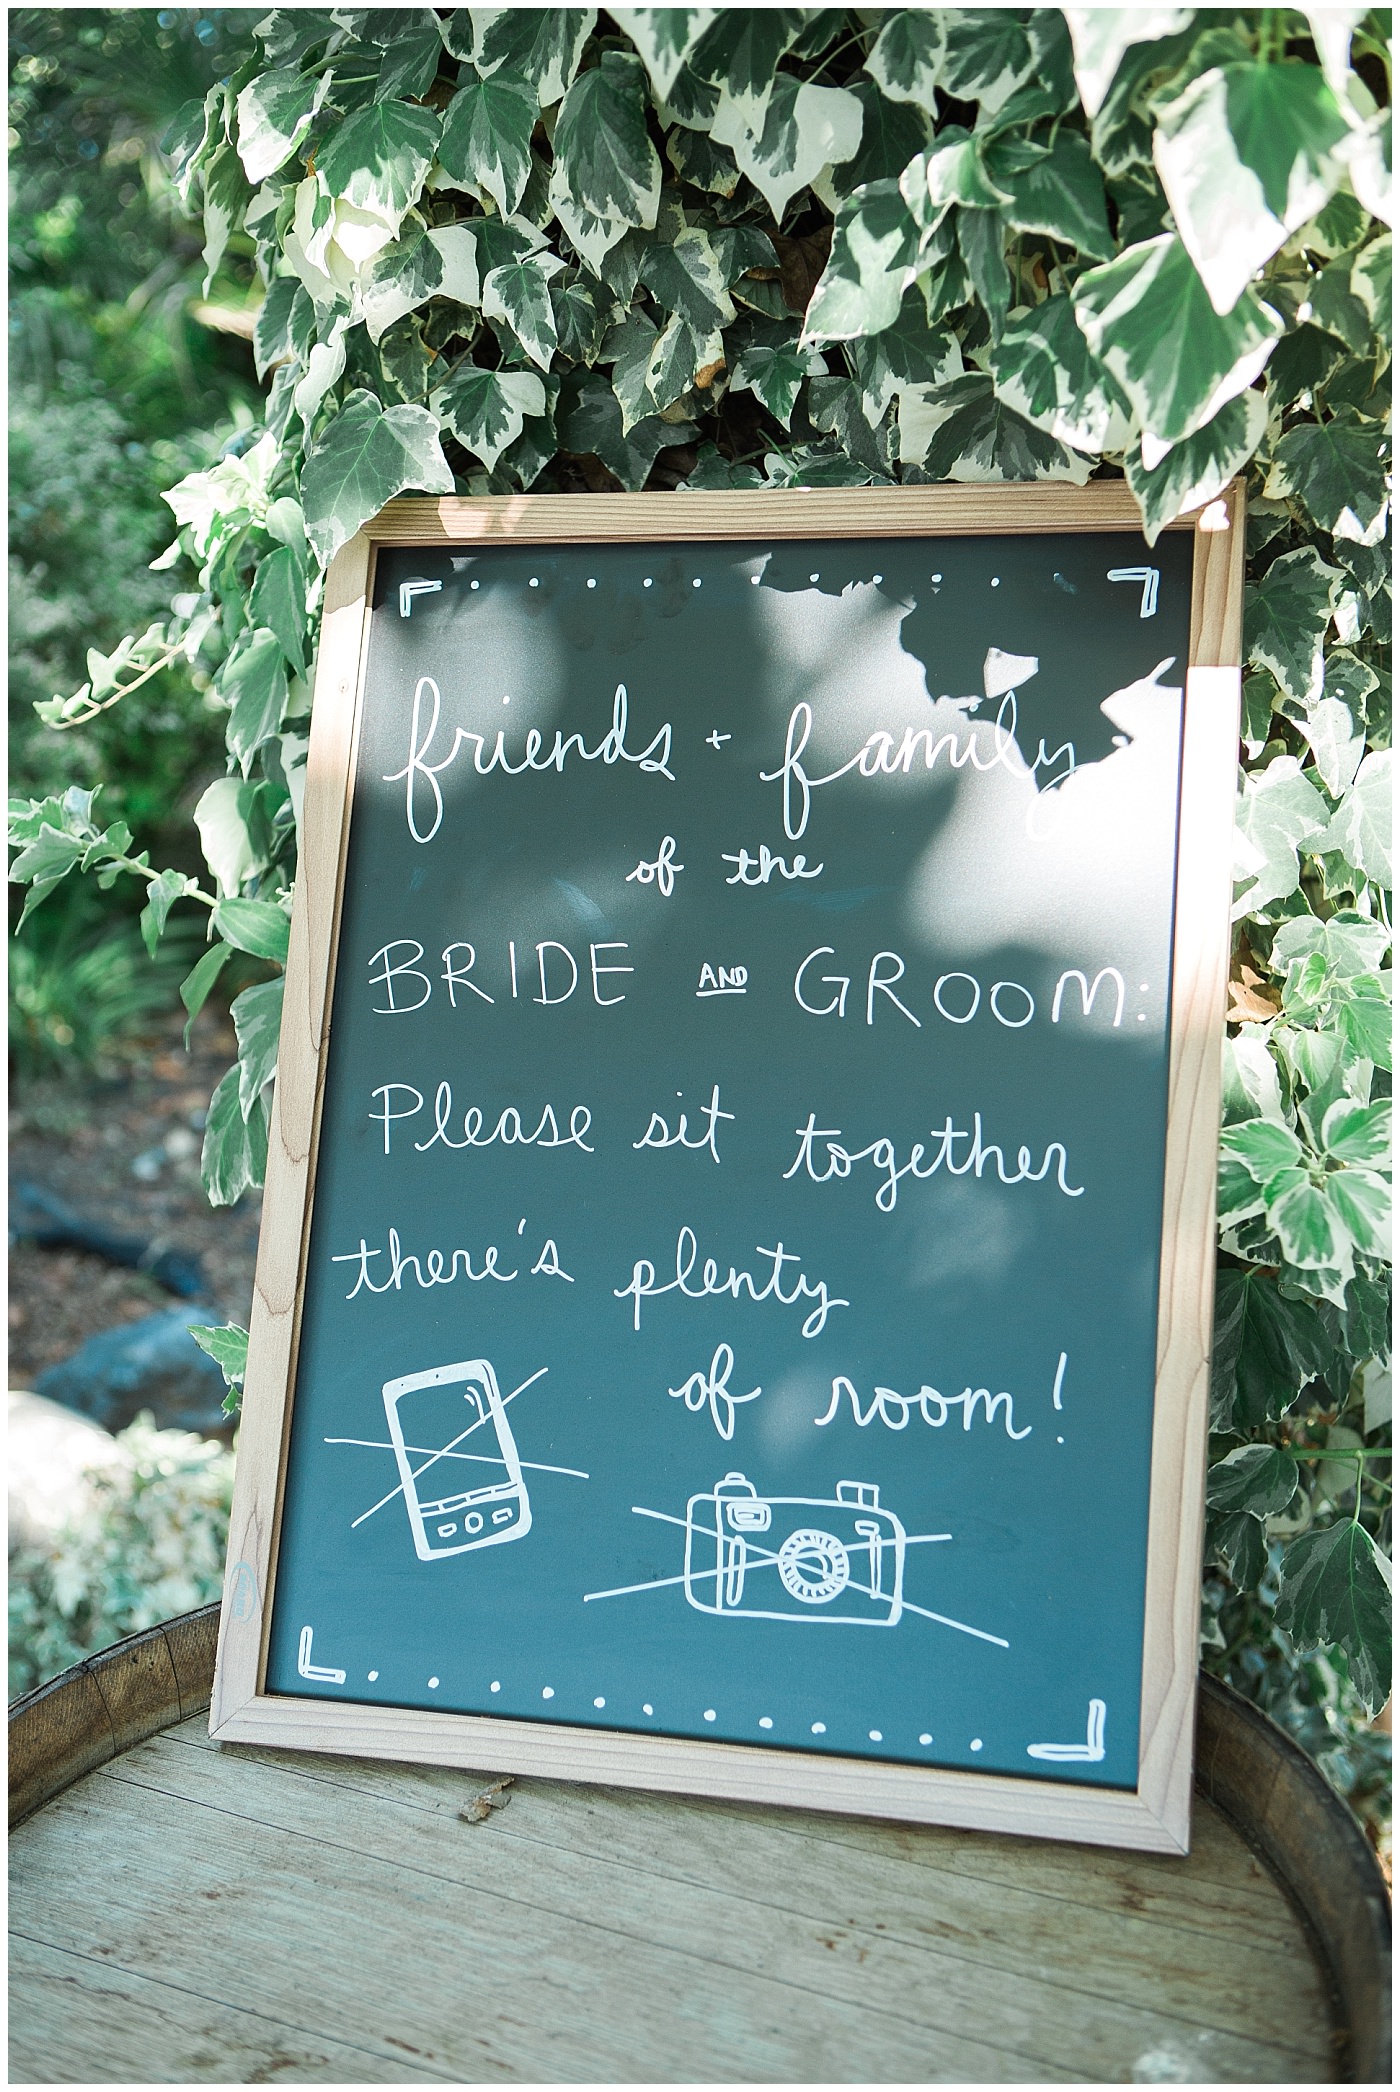 friends + family
of the
BRIDE AND GROOM:
Please sit together
there's plenty
of room!